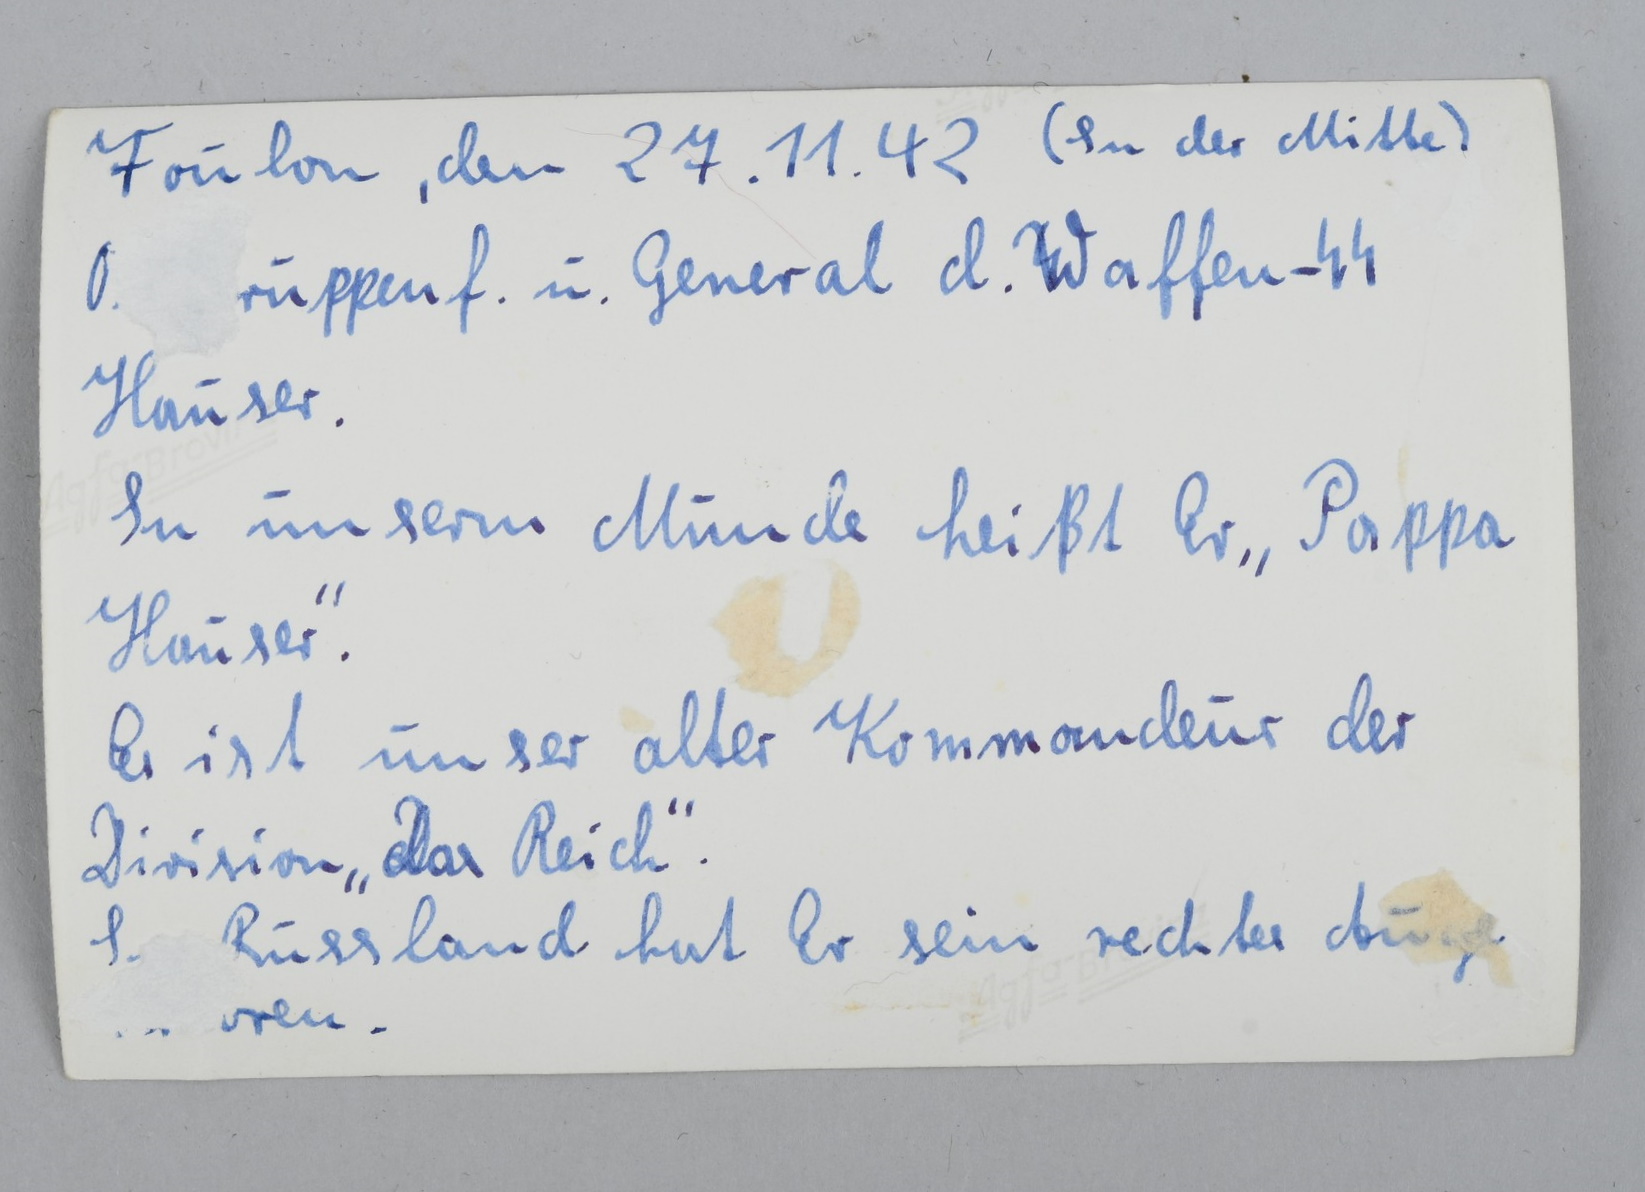 Toulon, den 27.11.42 (In der Mitte)
O. ruppenf. u. General d. Waffen-SS
Hauser.
In unserm Munde heißt Er „Pappa
Hauser“.
Er ist unser alter Kommandeur der
Division „Das Reich“.
I. Russland hat Er sein rechtes Auge
oren.